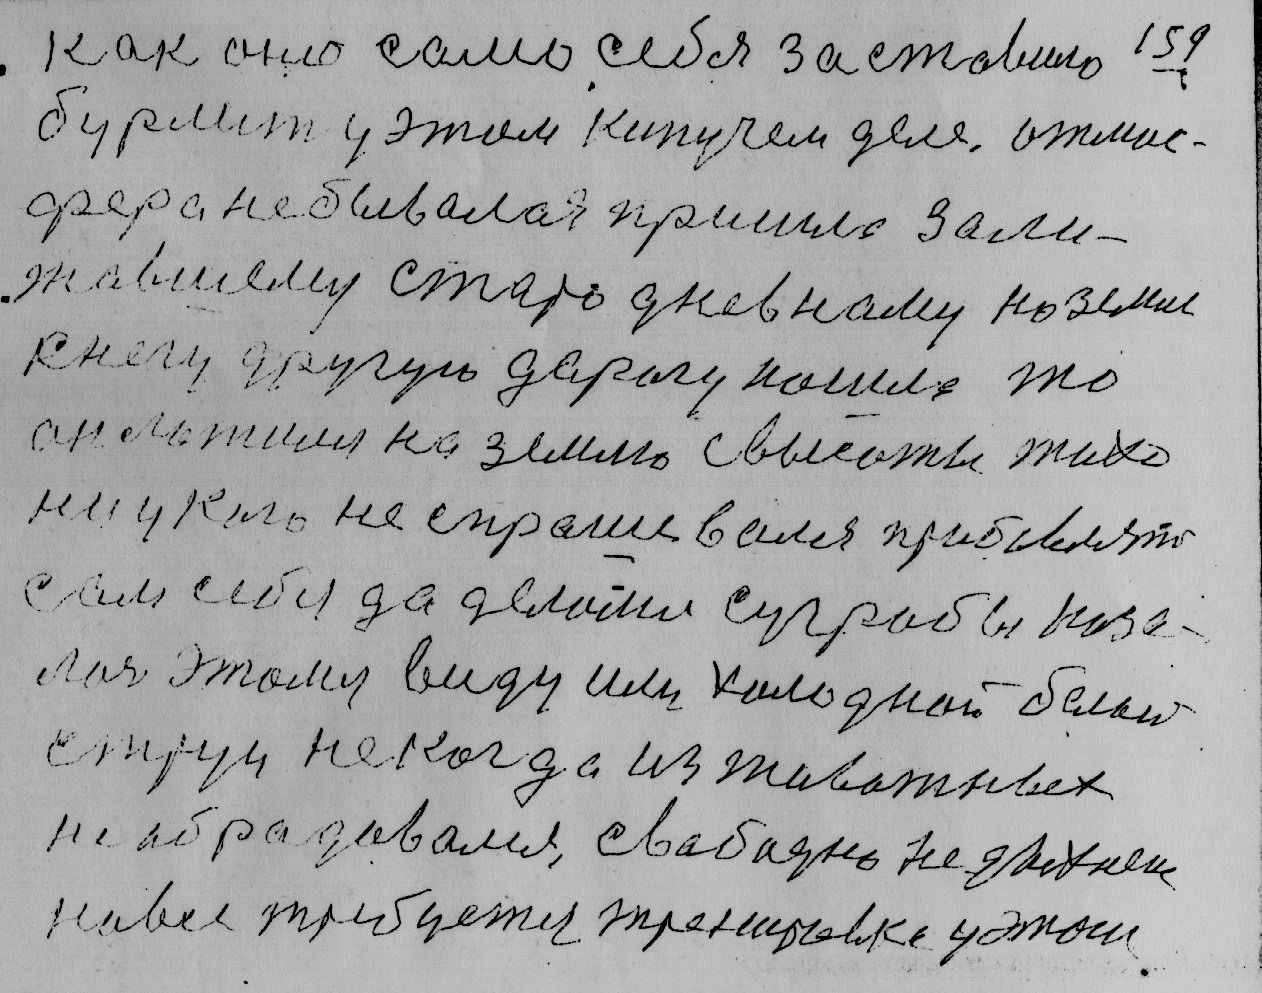 как оно само себя заставило 159
бурлит у этом кипучем деле. отмос-
фера небывалая пришла зали-
жавшему старо дневнаму на земли
снегу другую дарогу нашла то
он лътился на землю свысоты тихо
ни у кого не спрашевался прибавлято
сам себя да делати сугробы каза-
лоя этому виду или холодной белай
струи некогда из живатных
не абрадавался, свабадно не дыхнеш
на все требуется тренировка у этом